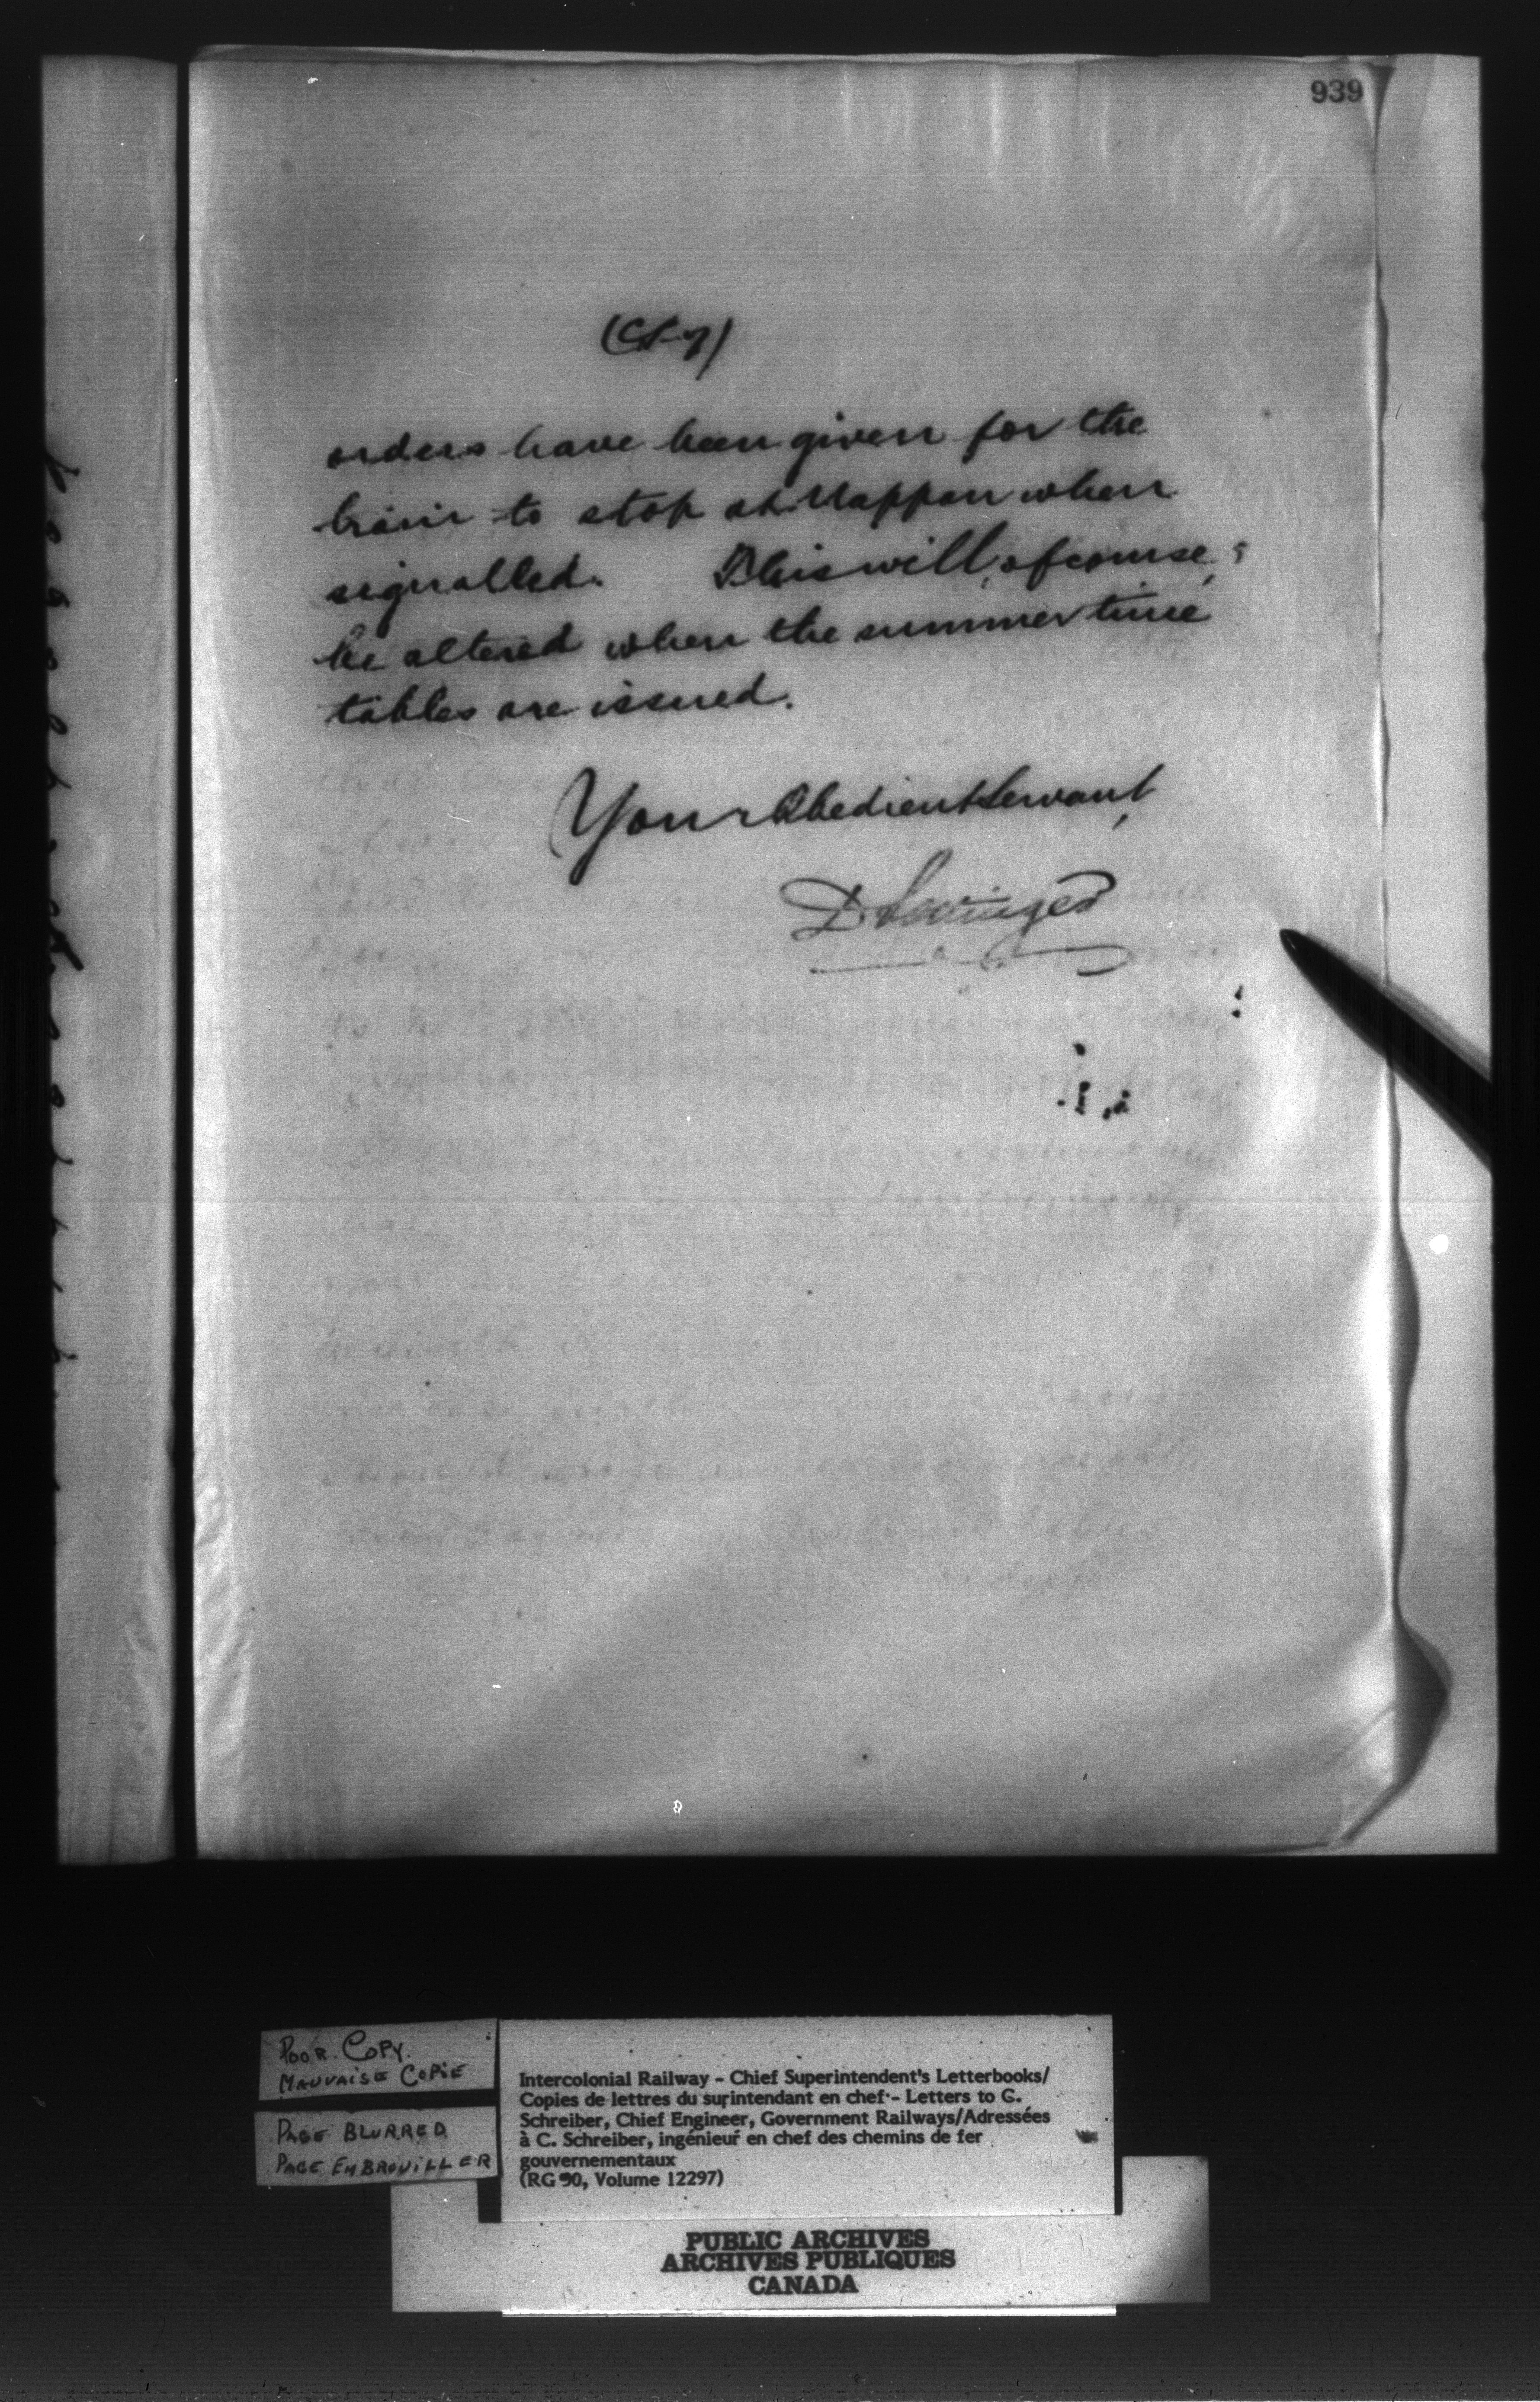 939
orders have been given for the
train to stop at Nappan when
signalled. This will, of course,
be altered when the summer time
tables are issued.
Your Obedient Servant,
D Pottinger
POOR COPY.
MAUVAISE COPIE
PAGE BLURRED
PAGE EMBROUILLER
Intercolonial Railway - Chief Superintendent's Letterbooks/
Copies de lettres du surintendant en chef - Letters to G.
Schreiber, Chief Engineer, Government Railways/Adressées
à C. Schreiber, ingénieur en chef des chemins de fer
gouvernementaux
(RG 30, Volume 12297)
PUBLIC ARCHIVES
ARCHIVES PUBLIQUES
CANADA